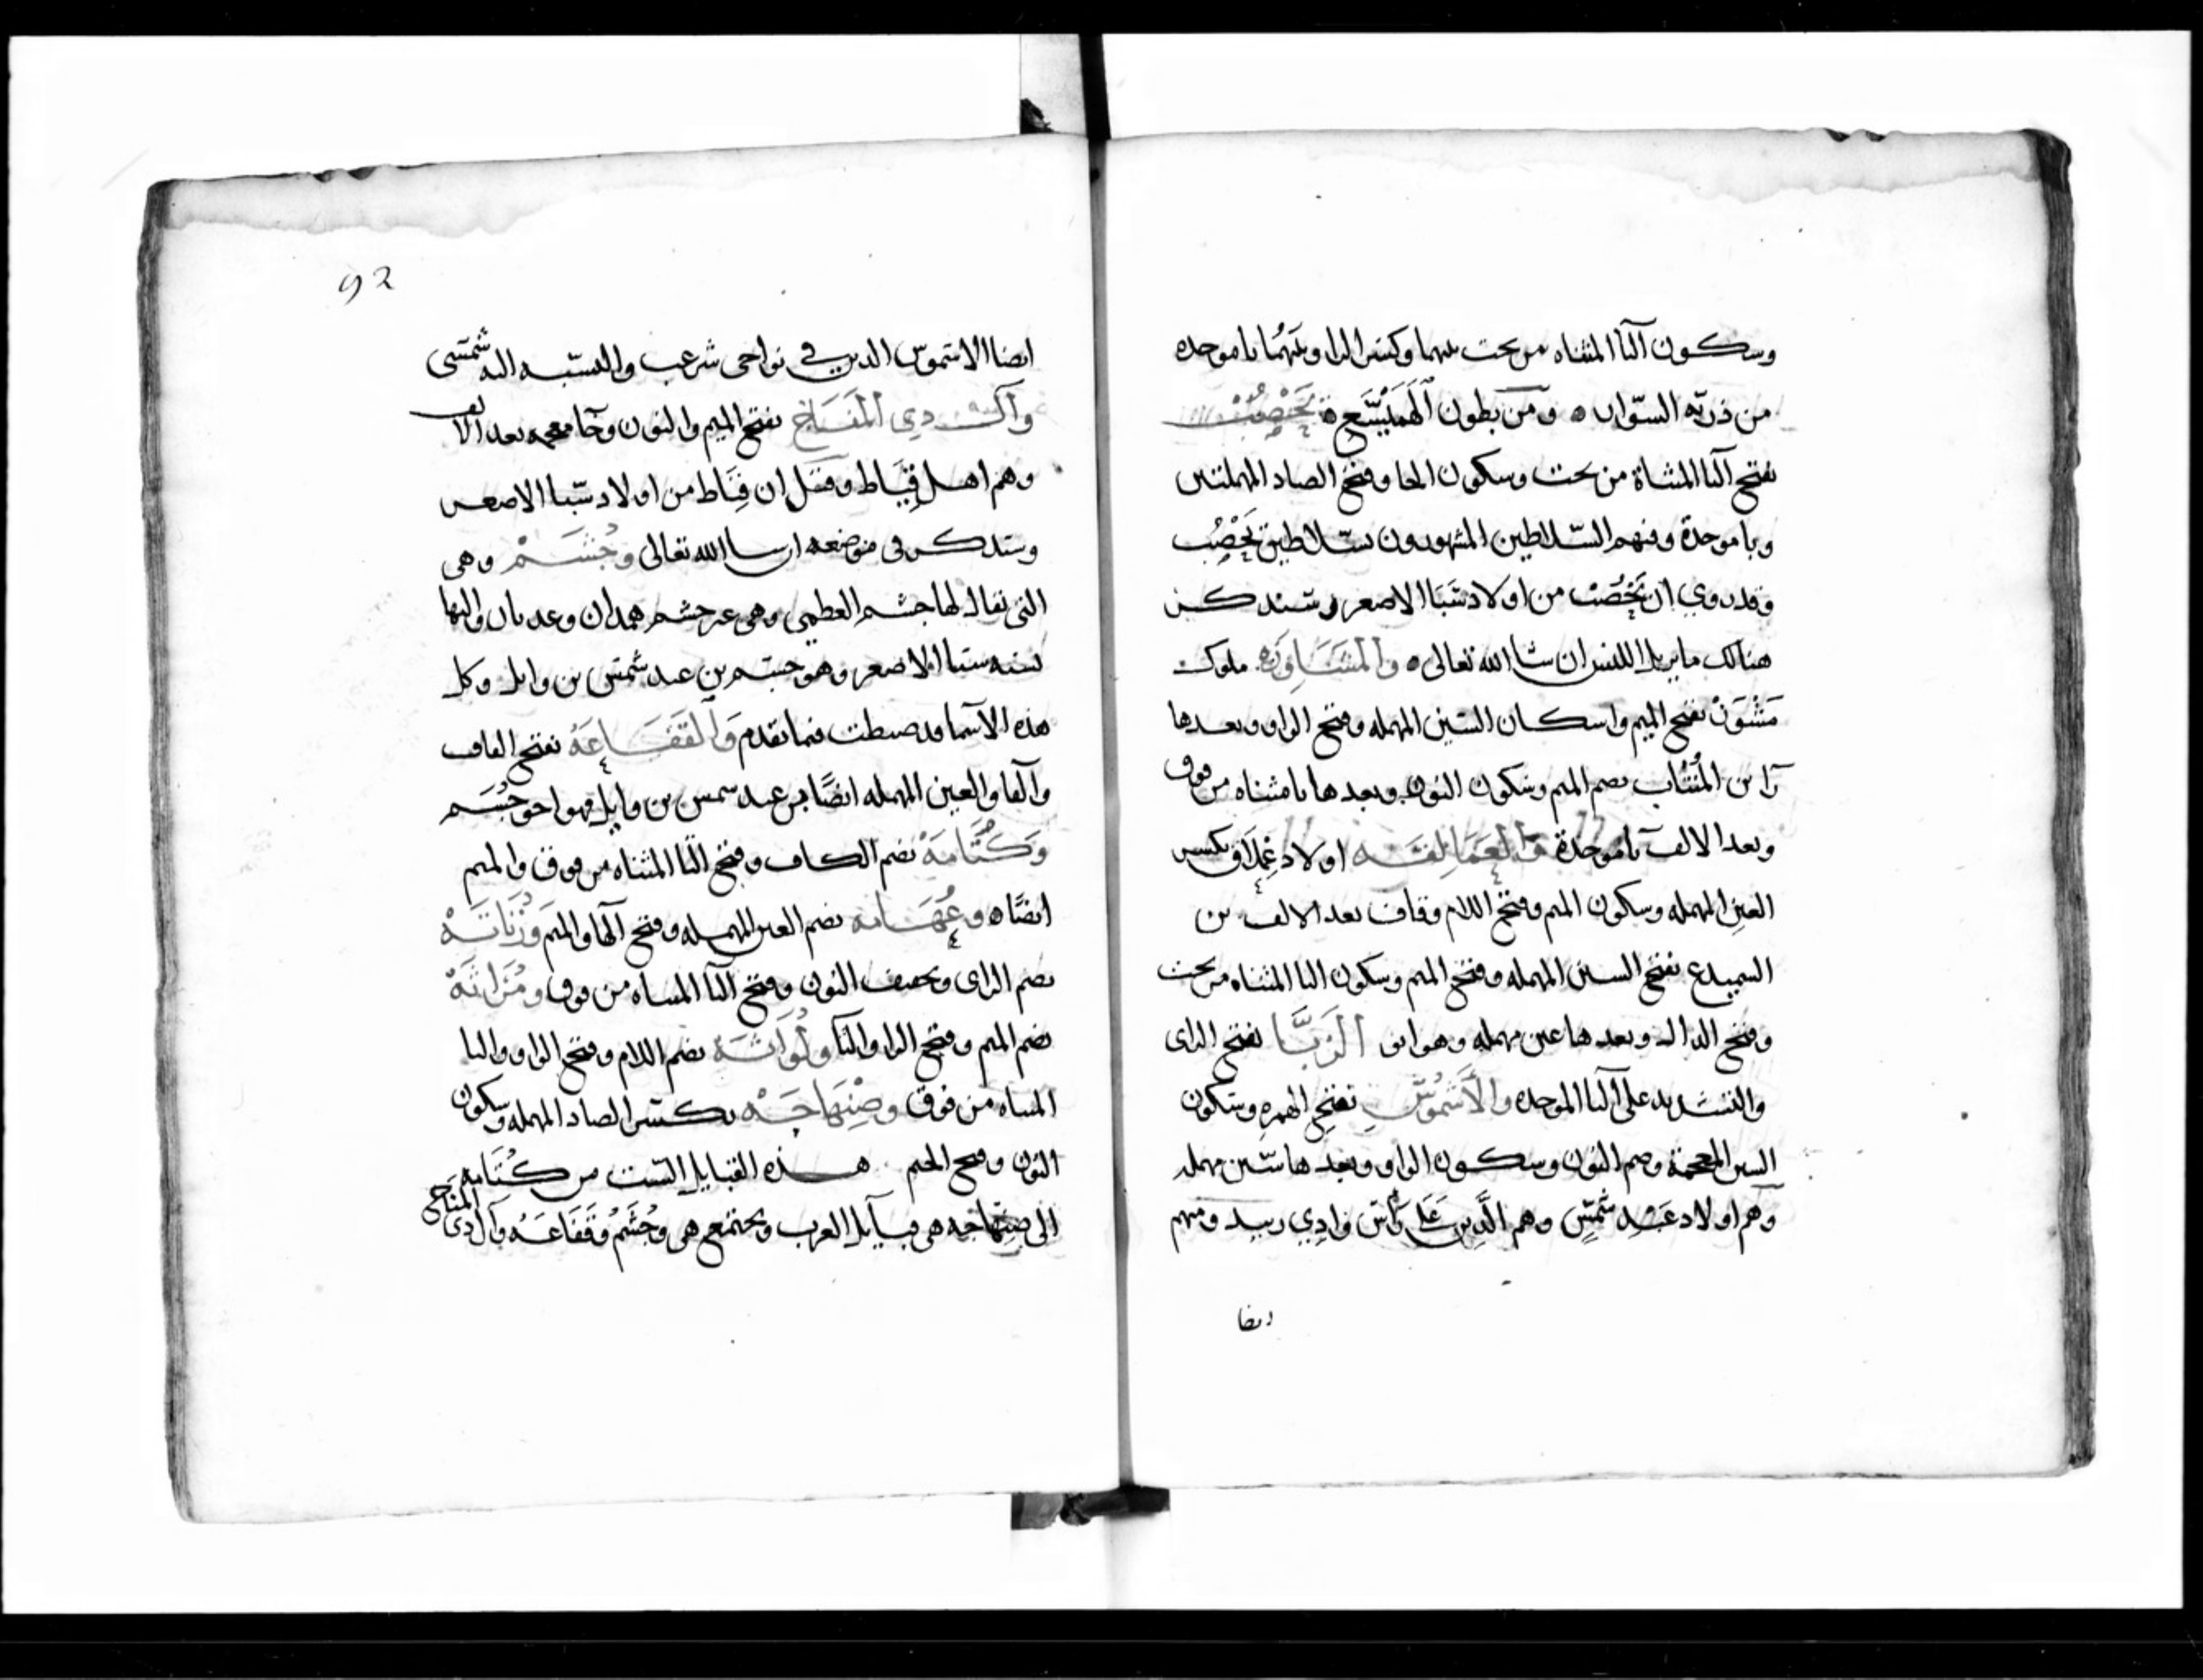 وسكون اليا المثناه من تحت بينهما وكسر الرا وبينهما با موحده
من ذريّه السوّاب ٥ ومن بطون الهَمَيْسَع ٥ يَحْصُب
بفتح اليا المثناة من تحت وسكون الحا وفتح الصاد المهملتين
وبا موحدة ومنهم السّلاطين المشهورون سلاطين يَحْصُب
وقد روي ان يَحْصُب من اولاد سَبَا الاصغر وسنذكر
هنالك ما يزيل اللبس ان شا الله تعالى ٥ والمَسَاوِرَه ملوك
مَسْوَرْ بفتح الميم واسكان السّين المهمله وفتح الواو وبعدها
رَا بن المُنْتَاب بضم الميم وسكون النون وبعدها تا مثناه من فوق
وبعد الالف با موحدة والعَمَالِقَه اولاد عِمْلَاق بكسر
العين المهمله وسكون الميم وفتح اللام وقاف بعد الالف بن
السميدع بفتح السين المهمله وفتح الميم وسكون اليا المثناه من تحت
وفتح الدال وبعدها عين مهمله وهو ابو الزبَّا بفتح الزاى
والتشديد على البا الموحده والأُشمُوس بفتح الهمزه وسكون
الشين المعجمة وضم النون وسكون الواو وبعدها سّين مهمله
وهم اولاد عَبْدِ شَمْسٍ وهم الَّذين عَلى رَاس وَادِي زبيد ومنهم
ايضا
92
ايضا الاشموس الذين في نواحى شرعب والنسبه اليه شمسى
وآل ذي المَنَاخ بفتح الميم والنون وخا معجمه بعد الالف
وهم اهل قِيَاط وقيل ان قِيَاط من اولاد سّبا الاصغر
وستذكر في موضعه ان شا الله تعالى وجُشَمْ وهى
التى يقال لها جشم العظمى وهى غير جشم همدان وعدنان واليها
نسبه سبا الاصغر وهو جشم بن عبد شمس بن وايل وكل
هذه الاسما قد ضبطت فيما تقدم وَالقَفَاعَهُ بفتح القاف
والفا والعين المهمله ايضًا بن عبد شمس بن وايل فهو اخو جُشَم
وَكُتَامَةْ بضم الكاف وفتح التا المثناه من فوق والميم
ايضًا ٥ وعُهَامه بضم العين المهمله وفتح الها والميم وَزُنَاتَهْ
بضم الزاى وتخفيف النون وفتح التا المثناه من فوق ومُزَاتَهْ
بضم الميم وفتح الزا والتا ولُوَاتَه بضم اللام وفتح الواو والتا
المثناه من فوق وصِنْهَاجَهْ بكسر الصاد المهمله وسكون
النون وفتح الجيم هذه القبايل السّت من كُتَامه
الى صِنْهَاجه هى قبايل العرب وتجتمع هى وجُشَمُ وقَفَاعَهُ وآل ذِى المَنَاخ